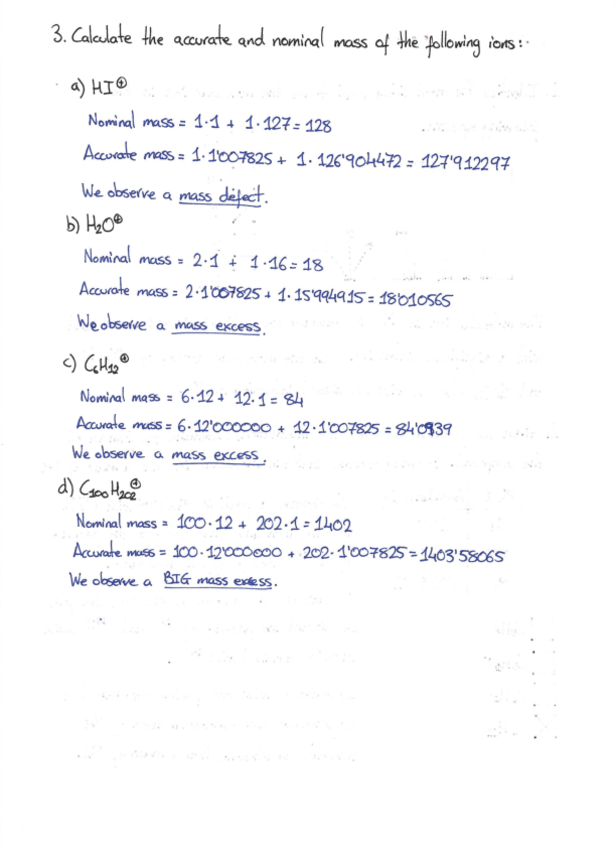 3. Calculate the accurate and nominal mass of the following ions:
a) HI⊕
Nominal mass = 1·1 + 1·127 = 128
Accurate mass = 1·1'007825 + 1·126'904472 = 127'912297
We observe a mass defect.
b) H₂O⊕
Nominal mass = 2·1 + 1·16 = 18
Accurate mass = 2·1'007825 + 1·15'994915 = 18'010565
We observe a mass excess.
c) C₆H₁₂⊕
Nominal mass = 6·12 + 12·1 = 84
Accurate mass = 6·12'000000 + 12·1'007825 = 84'0939
We observe a mass excess.
d) C₁₀₀H₂₀₂⊕
Nominal mass = 100·12 + 202·1 = 1402
Accurate mass = 100·12'000000 + 202·1'007825 = 1403'58065
We observe a BIG mass excess.